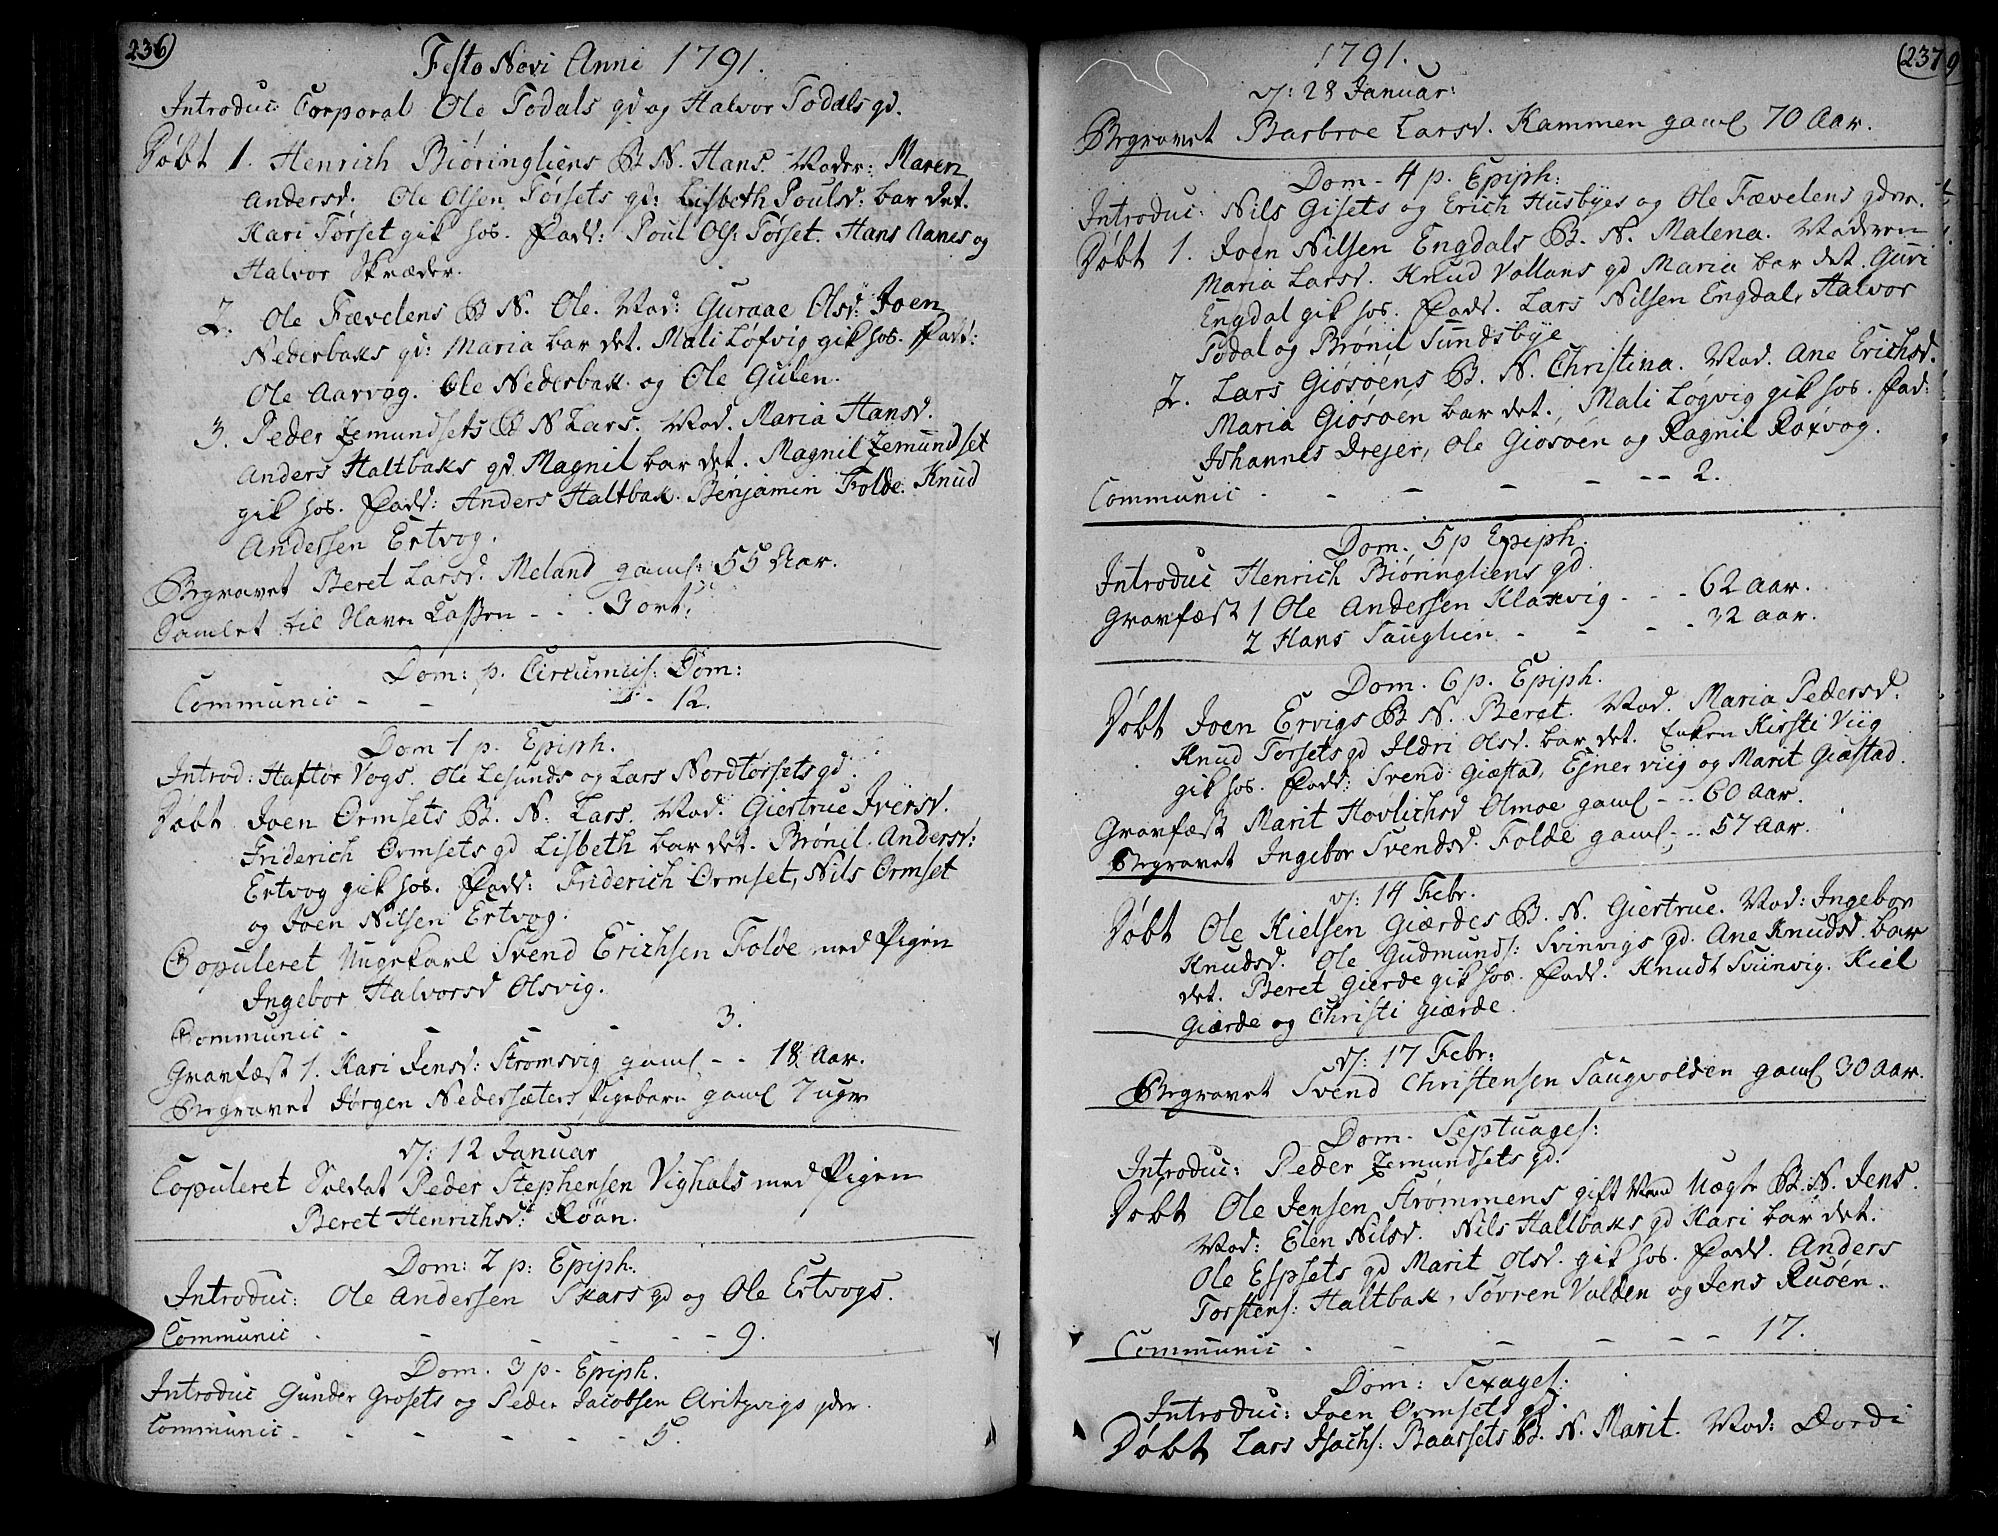 236
Festo Novi Anni 1791.
Introduc: Corporal Ole Todals qd og Halvor Todals qd.
Døbt 1. Henrich Biøringliens B N. Hans. Moder: Maren
Andersd. Ole Olsen Tørsets qd: Lisbeth Poulsd: bar det.
Kari Tørset gik hos. Fadd: Poul Ols: Tørset. Hans Aanes og
Halvor Skræder.
2. Ole Fævelens B N. Ole. Mod: Guraae Olsd: Joen
Nederbaks qd: Maria bar det. Mali Løfvig gik hos. Fadd:
Ole Aarvog. Ole Nederbak og Ole Gulen.
3. Peder Zemundsets B N Lars. Mod. Maria Hansd.
Anders Haltbaks qd. Magnil bar det. Magnil Zemundset
gik hos. Fadd: Anders Haltbak. Benjamin Folde. Knud
Andersen Ertvog.
Begravet Beret Larsd. Meland gaml: 55 Aar.
Samlet til Haven Cassen - - . 3 ort.
Dom: p. Circumcis: Dom:
Communic - - - 12.
Dom 1 p. Epiph.
Introd: Haftor Vogs. Ole Lesunds og Lars Nordtørsets qd.
Døbt Joen Ormsets B. N. Lars. Mod. Giertrue Iversd.
Friderich Ormsets qd Lisbeth bar det. Brønil Andersd:
Ertvog gik hos. Fadd: Friderich Ormset, Nils Ormset
og Joen Nilsen Ertvog.
Copuleret Ungekarl Svend Erichsen Folde med Pigen
Ingebor Halvorsd Olsvig.
Communic - - - 3.
Gravfæst 1. Kari Jensd: Strømsvig gaml - - 18 Aar.
Begravet Jørgen Nedersæters Pigebarn gaml 7 uger
d: 12 Januar
Copuleret Soldat Peder Stephensen Vighals med Pigen
Beret Henrichsd: Røan.
Dom: 2 p: Epiph.
Introduc: Ole Andersen Skars qd og Ole Ertvogs.
Communic - - - - - - 9.
Dom. 3 p. Epiph.
Introduc Gunder Grosets og Peder Jacobsen Aritzvigs qder.
Communic - - - - - - 5.
237
1791.
d: 28 Januar:
Begravet Barbroe Larsd. Kammen gaml 70 Aar.
Dom - 4 p. Epiph:
Introduc: Nils Gisets og Erich Husbyes og Ole Fævelens qder.
Døbt 1. Joen Nilsen Engdals B. N. Malena. Moderen
Maria Larsd. Knud Vollans qd Maria bar det. Guri
Engdal gik hos. Fadd. Lars Nilsen Engdal, Halvor
Todal og Brønil Sundsbye
2. Lars Giøsøens B. N. Christina. Mod. Ane Erichsd.
Maria Giøsøen bar det. Mali Løgvig gik hos. Fad:
Johannes Drejer, Ole Giøsøen og Ragnil Roxvog.
Communic - - - - - - 2.
Dom. 5 p Epiph.
Introduc Henrich Biøringliens qd.
Gravfæst 1 Ole Andersen Klaxvig - - - 62 Aar.
2 Hans Sauglien - - - - 32 aar.
Dom. 6 p. Epiph.
Døbt Joen Ervigs B N. Beret. Mod. Maria Pedersd.
Knud Torsets qd Ildri Olsd. bar det. Enken Kirsti Viig
gik hos. Fadd: Svend Giæstad, Ejner viig og Marit Giæstad.
Gravfæst Marit Hovlichsd Olmoe gaml - - 60 Aar.
Begravet Ingebor Svendsd. Folde gaml - - 57 Aar.
d: 14 Febr.
Døbt Ole Kielsen Giærdes B. N. Giertrue. Mod: Ingebor
Knudsd. Ole Gudmunds: Svinvigs qd. Ane Knudsd. bar
det. Beret Gierde gik hos. Fadd. Knudt Sviinvig. Kiel
Giærde og Christi Giærde.
d: 17 Febr:
Begravet Svend Christensen Saugvolden gaml 30 Aar.
Dom. Septuages:
Introduc: Peder Zemundsets qd.
Døbt Ole Jensen Strømmens gift Mand Uægte B. N. Jens.
Mod: Elen Nilsd. Nils Haltbaks qd Kari bar det.
Ole Espsets qd Marit Olsd. gik hos. Fadd. Anders
Torstens: Haltbak, Søvren Valden og Jens Ruøen.
Communic - - - - - - 17.
Dom: Sexages:
Introduc: Joen Ormsets qd.
Døbt Lars Isachs: Baarsets B. N. Marit. Mod: Dordi